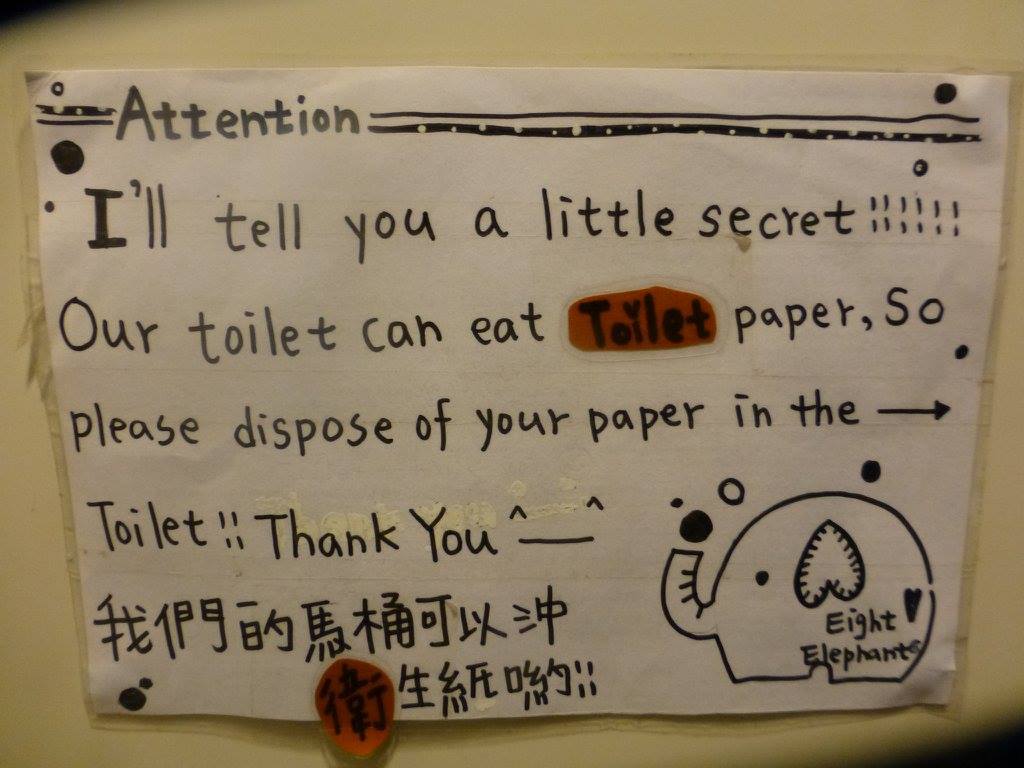 Attention
I'll tell you a little secret!!!!!!
Our toilet can eat Toilet paper, So
please dispose of your paper in the →
Toilet!! Thank You ^_^
我們的馬桶可以沖
衛生紙喲!!
Eight
Elephants